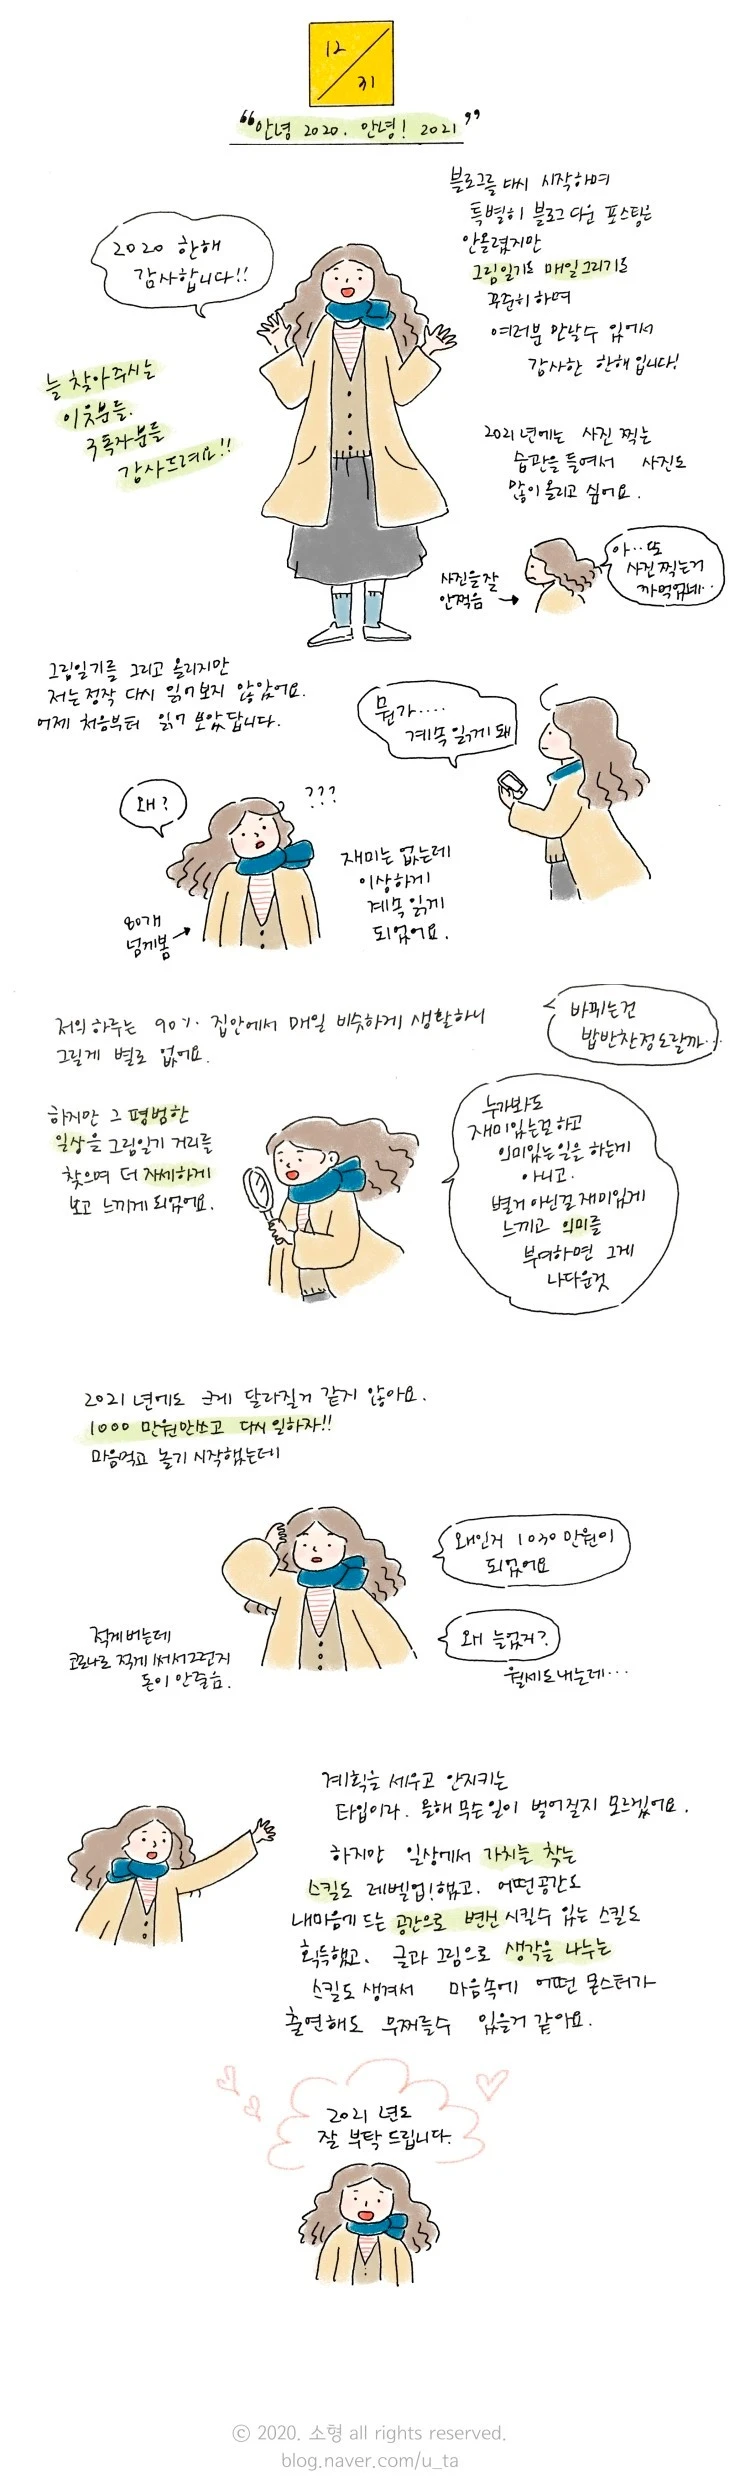 12
31
"안녕 2020. 안녕! 2021"
2020 한해
감사합니다!!
블로그를 다시 시작하며
특별히 블로그 다운 포스팅은
안올렸지만
그림일기로 매일그리기를
꾸준히 하며
여러분 만날수 있어서
감사한 한해 입니다!
늘 찾아주시는
이웃분들.
구독자분들
감사드려요!!
2021년에는 사진 찍는
습관을 들여서 사진도
많이 올리고 싶어요.
사진을 잘
안찍음
아..또
사진 찍는거
까먹었네..
그림일기를 그리고 올리지만
저는 정작 다시 읽어 보지 않았어요.
어제 처음부터 읽어 보았답니다.
뭔가....
계속 읽게 돼
왜?
???
80개
넘게봄
재미는 없는데
이상하게
계속 읽게
되었어요.
저의 하루는 90% 집안에서 매일 비슷하게 생활하니
그릴게 별로 없어요.
바뀌는건
밥반찬정도랄까...
하지만 그 평범한
일상을 그림일기 거리를
찾으며 더 자세하게
보고 느끼게 되었어요.
누가봐도
재미있는걸 하고
의미있는 일을 하는게
아니고.
별거 아닌걸 재미있게
느끼고 의미를
부여하면 그게
나다운것
2021년에도 크게 달라질거 같지 않아요.
1000 만원만쓰고 다시 일하자!!
마음먹고 놀기 시작했는데
왜인거 1030만원이
되었어요
왜 늘었지?
월세도내는데...
적게버는데
코로나로 적게 써서그런지
돈이 안줄음.
계획을 세우고 안지키는
타입이라. 올해 무슨일이 벌어질지 모르겠어요.
하지만 일상에서 가치를 찾는
스킬도 레벨업!했고. 어떤공간도
내마음에 드는 공간으로 변신 시킬수 있는 스킬도
획득했고. 글과 그림으로 생각을 나누는
스킬도 생겨서 마음속에 어떤 몬스터가
출연해도 무찌를수 있을거 같아요.
2021년도
잘 부탁 드립니다.
© 2020. 소형 all rights reserved.
blog.naver.com/u_ta